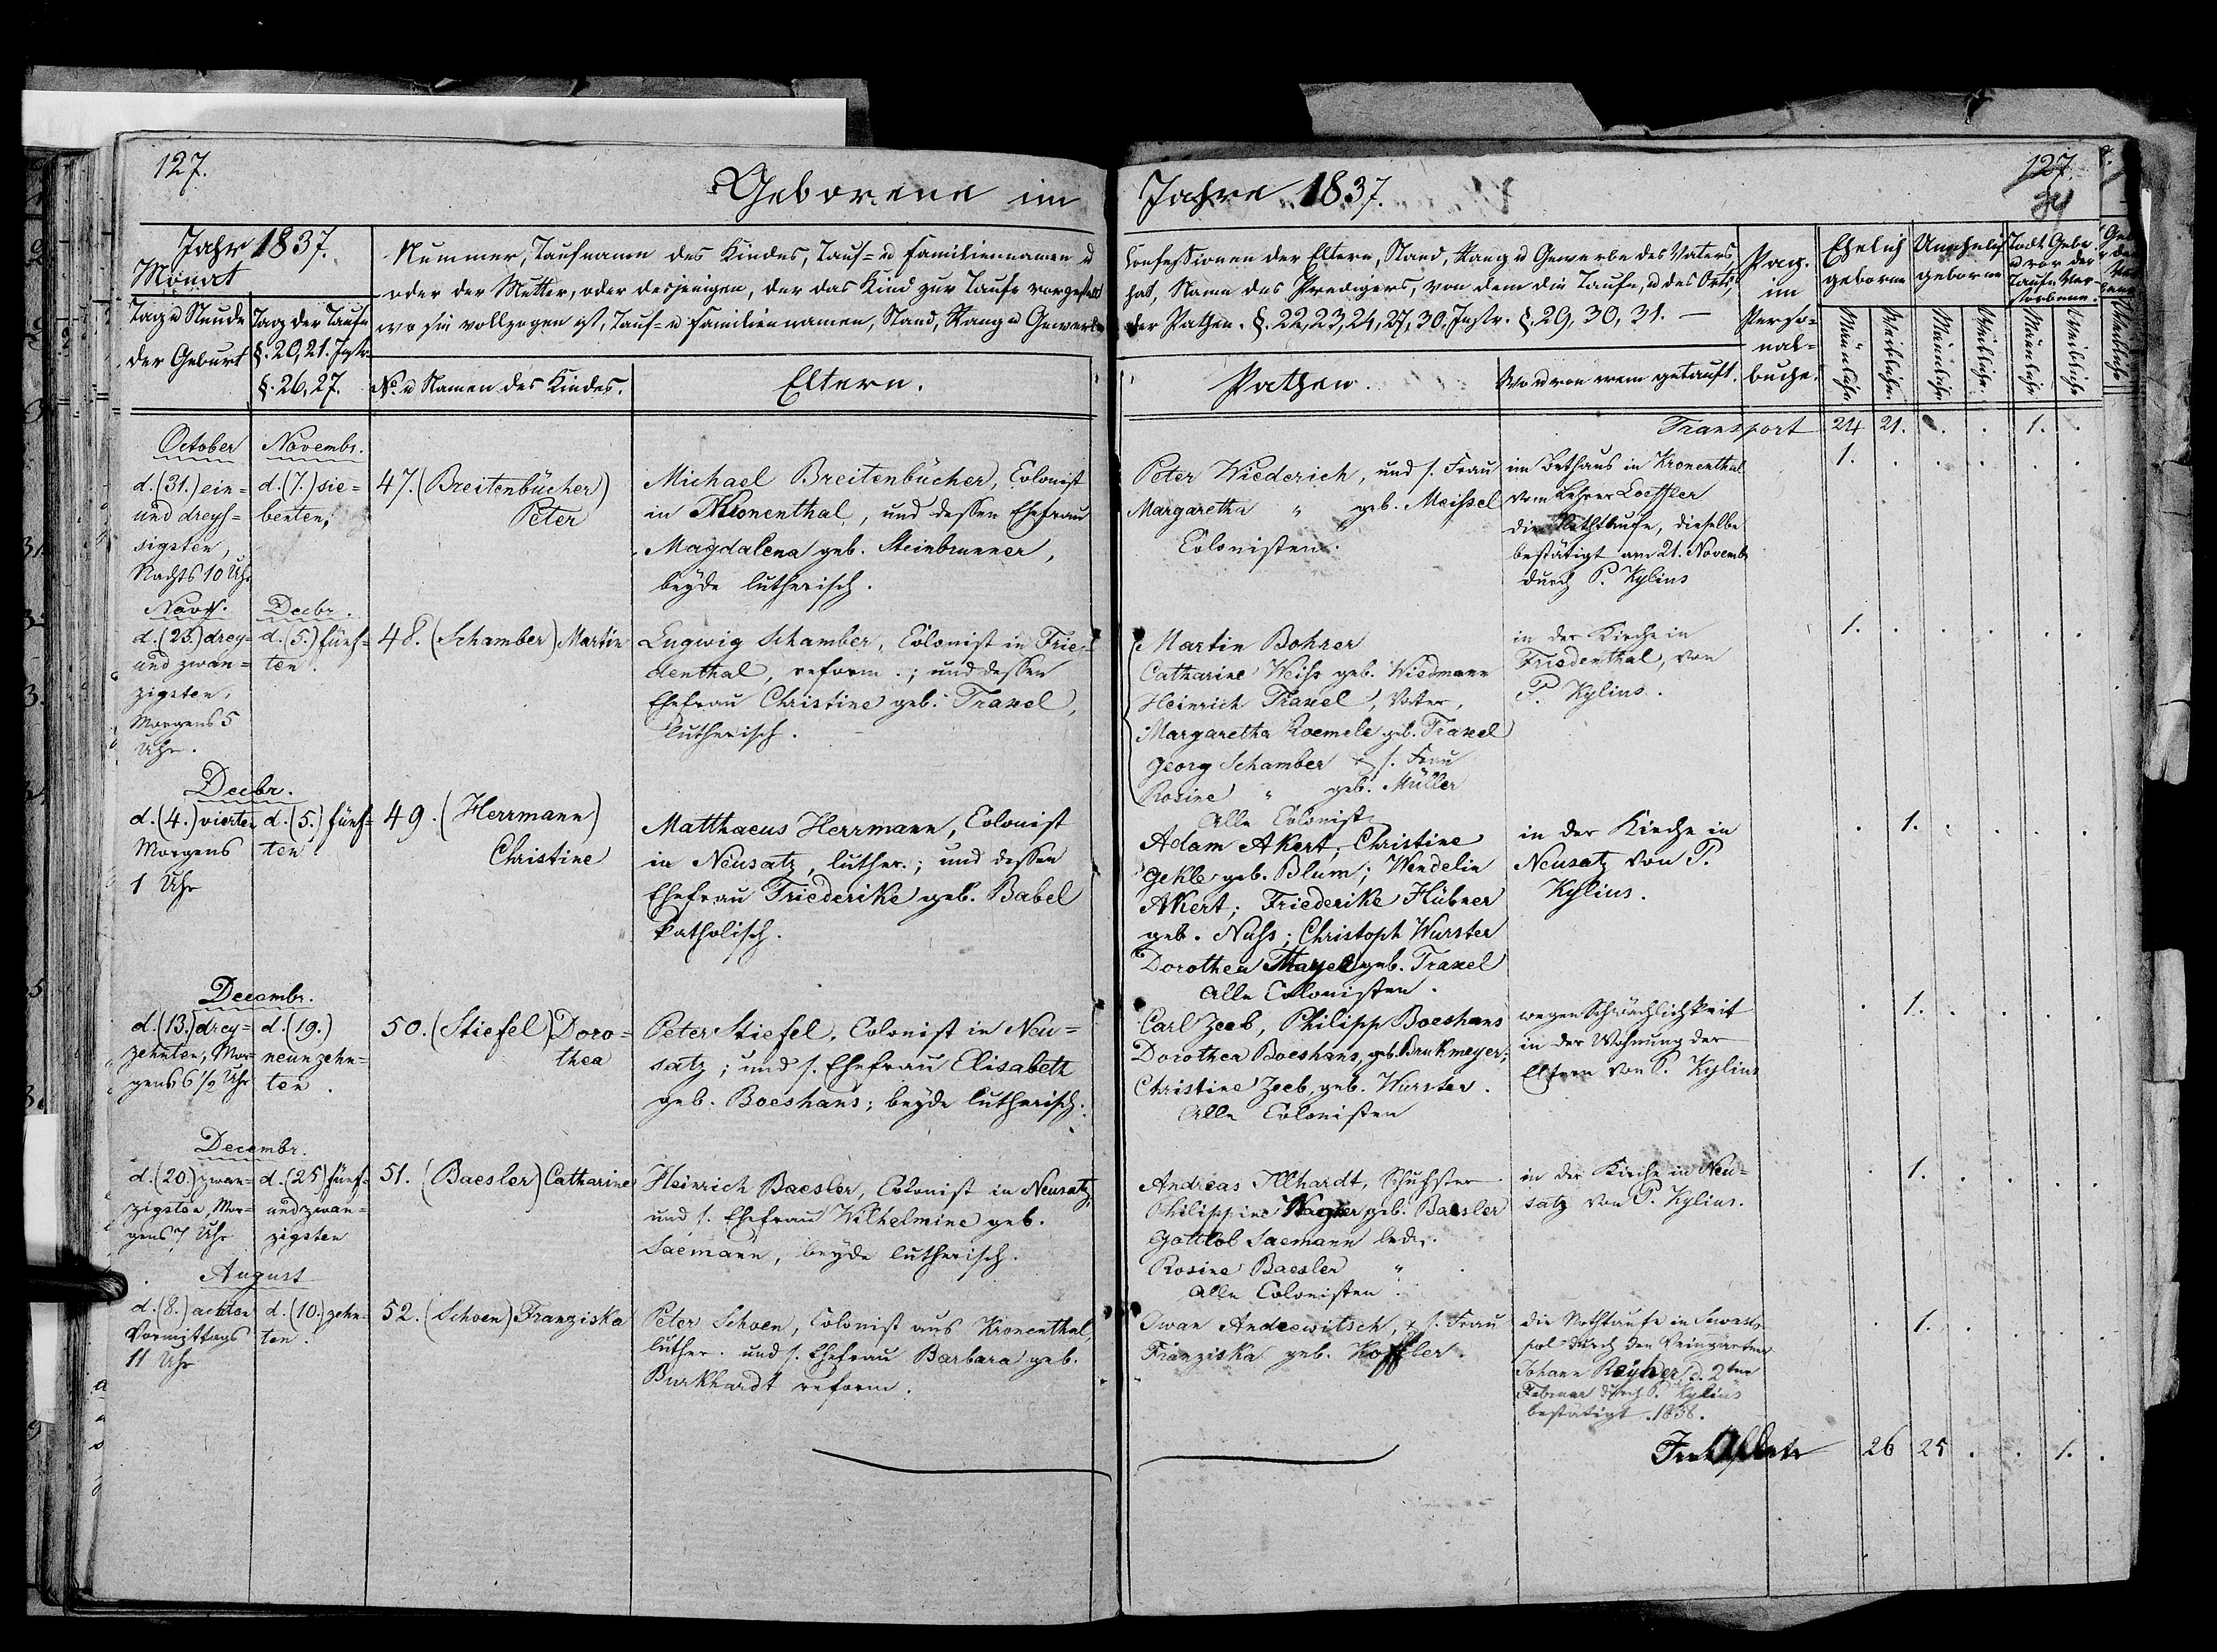 127.
Geborene im
Jahr 1837.
Monat
Nummer, Taufnamen des Kindes, Tauf- u Familiennamen d
oder der Mutter, oder desjenigen, der das Kind zur Taufe vorgestellt
wo sie vollzogen ist, Tauf- u Familiennamen, Stand, Rang u Gewerbe
Tag u Stunde
der Geburt
Tag der Taufe
§. 20, 21. Instr.
§. 26, 27.
No u Namen des Kindes.
Eltern.
October
d. (31.) ein-
und dreys-
sigsten,
Nachts 10 Uhr
Novembr.
d. (7.) sie-
benten,
47. (Breitenbücher)
Peter
Michael Breitenbücher, Colonist
in Kronenthal, und dessen Ehefrau
Magdalena geb. Steinbrunner,
beyde lutherisch.
Novr.
d. (23.) drey-
und zwan-
zigsten,
Morgens 5
Uhr.
Decbr.
d. (5.) fünf-
ten.
48. (Schamber) Martin
Lugwig Schamber, Colonist in Frie-
denthal, reform.; und dessen
Ehefrau Christine geb. Traxel,
lutherisch.
Decbr.
d. (4.) vierten
Morgens
1 Uhr
d. (5.) fünf-
ten.
49. (Herrmann)
Christine
Matthaeus Herrmann, Colonist
in Neusatz, luther.; und dessen
Ehefrau Friederike geb. Babel
katholisch.
Decembr.
d. (13.) drey-
zehnten, Mor-
gens 6 1/2 Uhr
d. (19.)
neunzehn-
ten.
50. (Stiefel) Doro-
thea
Peter Stiefel, Colonist in Neu-
satz; und s. Ehefrau Elisabeth
geb. Boeshans; beyde lutherisch.
Decembr.
d. (20.) zwan-
zigsten, Mor-
gens 7 Uhr
d. (25) fünf-
und zwan-
zigsten
51. (Baesler) Catharine
Heinrich Baesler, Colonist in Neusatz,
und s. Ehefrau Wilhelmine geb.
Saemann, beyde lutherisch.
August
d. (8.) achten
Vormittags
11 Uhr
d. (10.) zehn-
ten.
52. (Schoen) Franziska
Peter Schoen, Colonist aus Kronenthal,
luther. und s. Ehefrau Barbara geb.
Burkhardt reform.
127.
34
Jahre 1837.
Confessionen der Eltern, Stand, Rang u Gewerbe des Vaters,
hat, Name des Predigers, von dem die Taufe, u des Orts,
der Pathen. §. 22, 23, 24, 27, 30, Instr. §. 29, 30, 31. —
Pathen.
Wo u von wem getauft.
Pag.
im
Perso-
nal-
buche.
Ehelich
geborne
Unehelich
geborne
Todt Gebo
u vor der
Taufe Ver-
storbene.
Männliche
Weibliche
Männliche
Weibliche
Männliche
Weibliche
Transport 24 21. . . 1. .
Peter Wiederich, und s. Frau
Margaretha " geb. Meissel
Colonisten.
im Bethaus in Kronenthal
vom Lehrer Loeffler
die Nothtaufe, dieselbe
bestätigt am 21. Novembr
durch P. Kylius
1. . . . . .
Martin Bohrer
Catharine Weiss geb. Wiedmann
Heinrich Traxel, Vater,
Margaretha Roemele geb. Traxel
Georg Schamber & s. Frau
Rosine " geb. Müller
Alle Colonist
in der Kirche in
Friedenthal, von
P. Kylius.
1. . . . . .
Adam Akert, Christine
Gekle geb. Blum; Wendelin
Akert; Friederike Hübner
geb. Nuss; Christoph Wurster
Dorothea Mayer geb. Traxel
Alle Colonisten.
in der Kirche in
Neusatz von P.
Kylius.
. 1. . . . .
Carl Zeeb, Philipp Boeshans
Dorothea Boeshans, geb. Brukmeyer;
Christine Zeeb, geb. Wurster.
Alle Colonisten
wegen Schwächlichkeit
in der Wohnung der
Eltern von P. Kylius
. 1. . . . .
Andreas Illhardt, Schuster
Philippine Wagner geb. Baesler
Gottlob Saemann led.
Rosine Baesler "
Alle Colonisten.
in der Kirche in Neu-
satz von P. Kylius.
. 1. . . . .
Iwan Andreewitsch, & s. Frau
Franziska geb. Koffler.
die Nothtaufe in Sewasto-
pol durch den Weingärtner
Johann d. 2ten
Februar durch P. Kylius
bestätigt 1838.
. 1. . . . .
26 25 . . 1. .